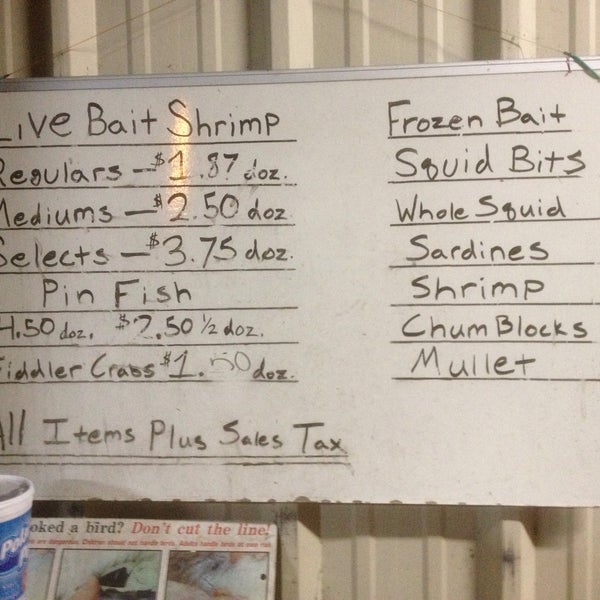 Live Bait Shrimp
Regulars - $1.87 doz.
Mediums - $2.50 doz
Selects - $3.75 doz.
Pin Fish
4.50 doz. $2.50 1/2 doz.
Fiddler Crabs $1.50 doz.
All Items Plus Sales Tax
Frozen Bait
Squid Bits
Whole Squid
Sardines
Shrimp
Chum Blocks
Mullet
oked a bird? Don't cut the line!
are dangerous. Children should not handle birds. Adults handle birds at own risk.